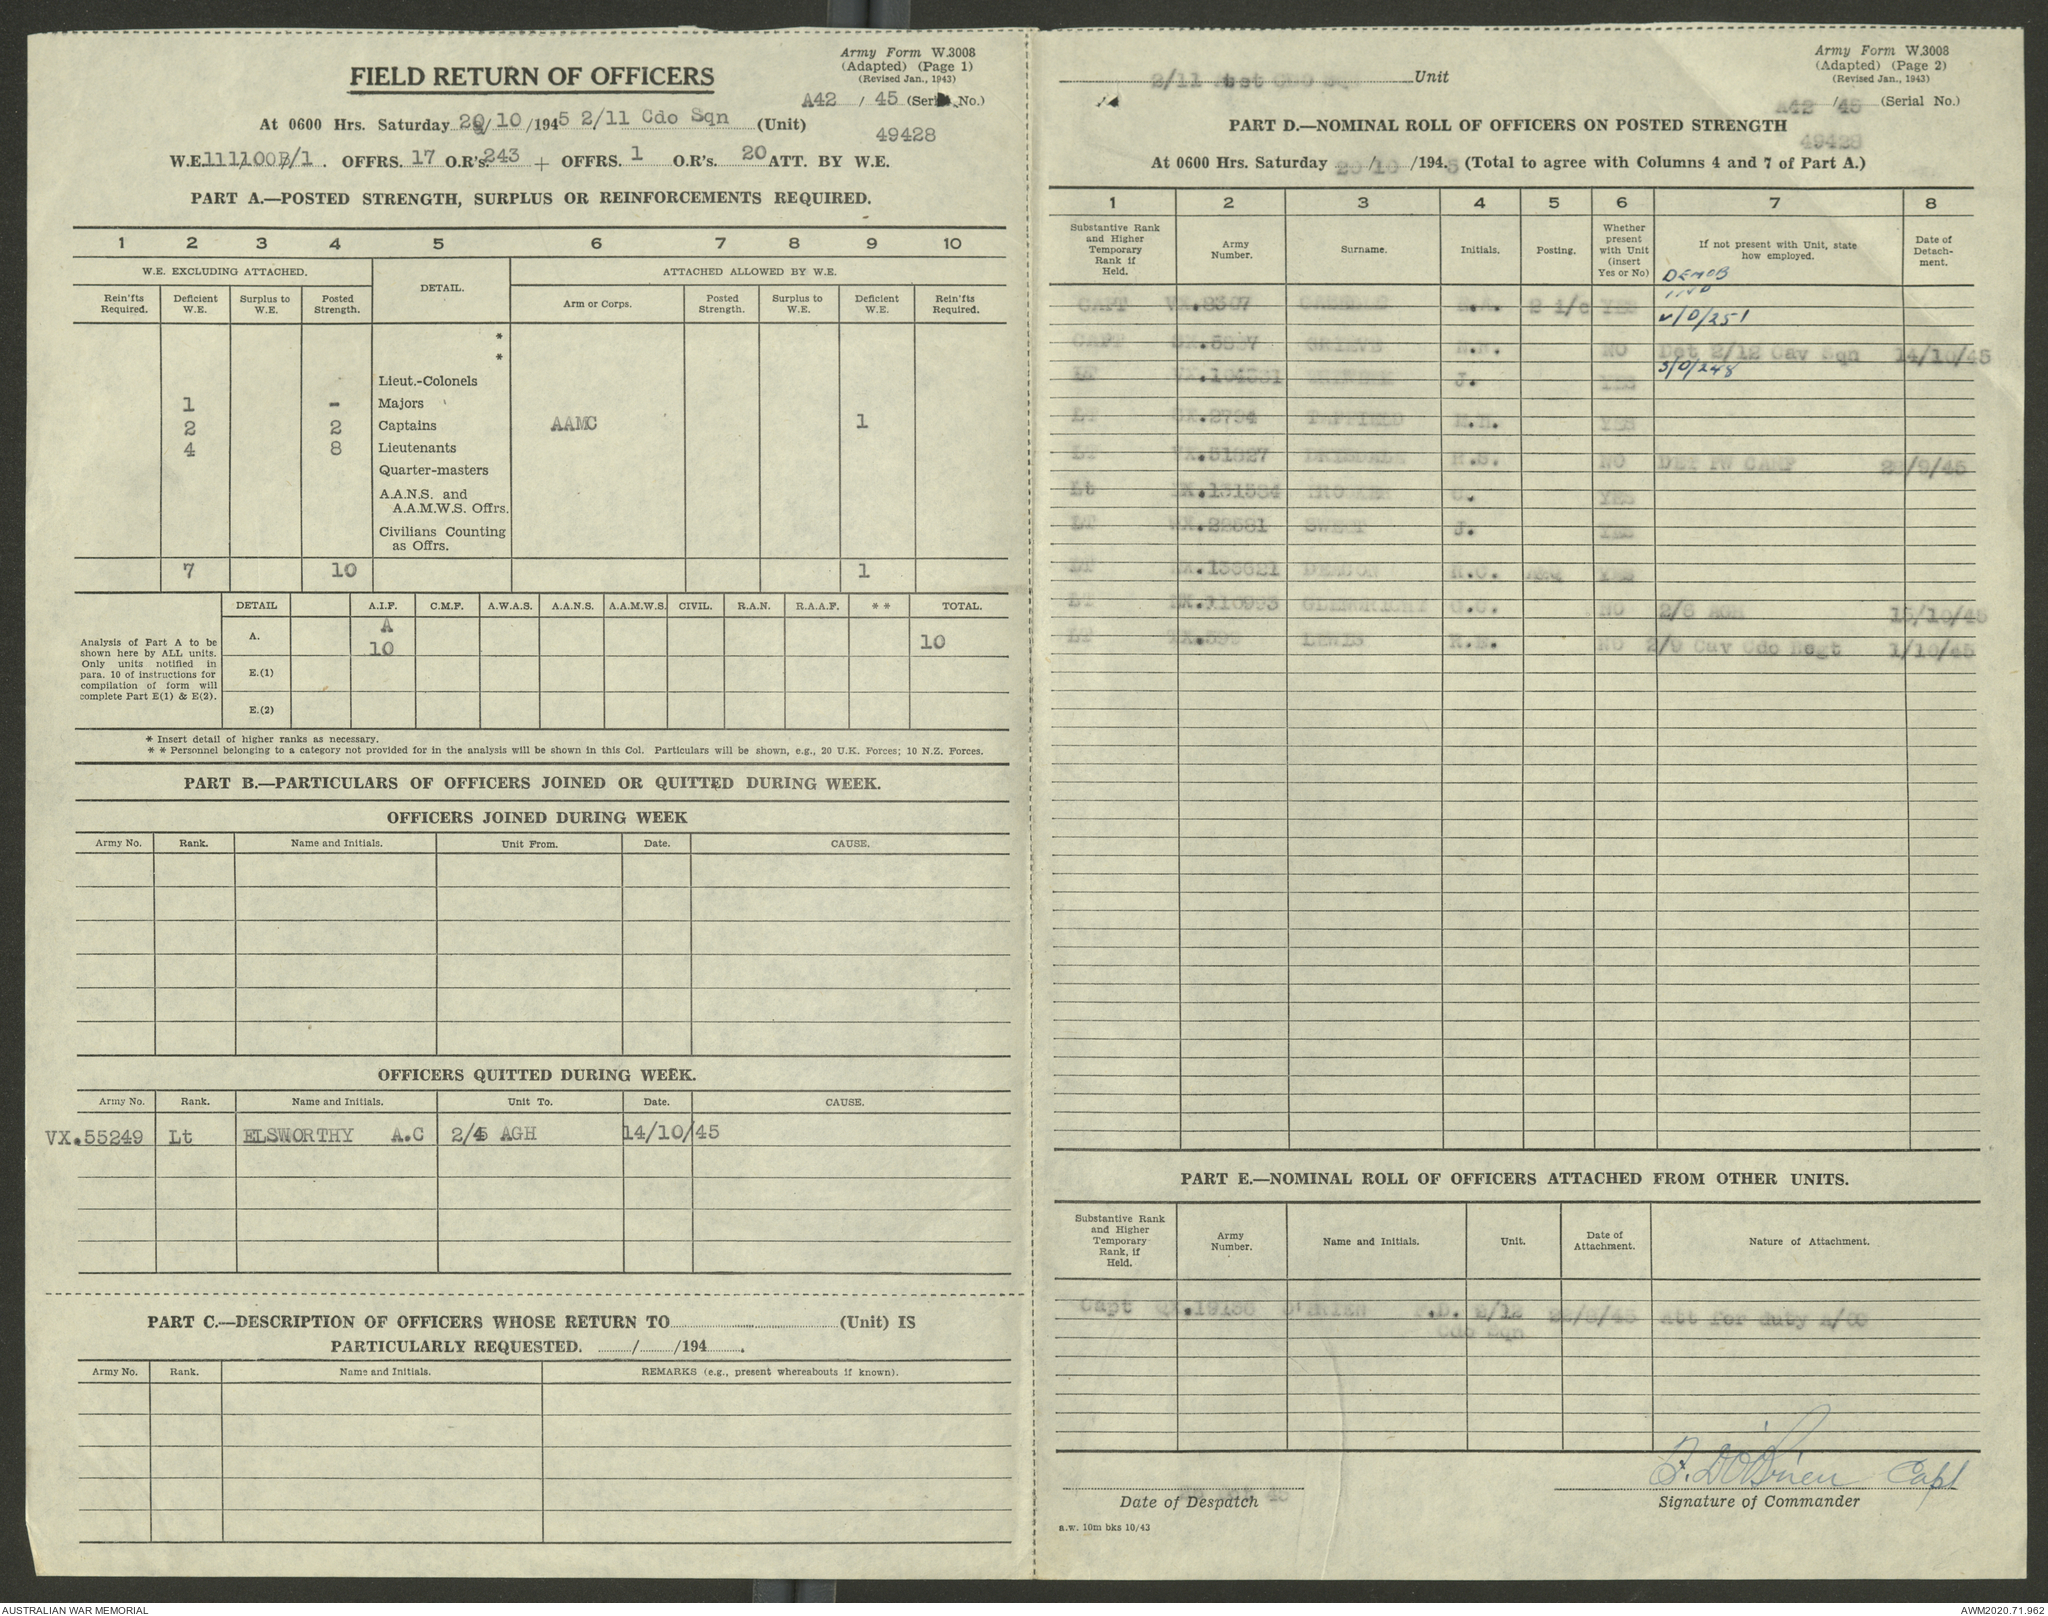 Army Form W.3008
(Adapted) (Page 1)
(Revised Jan., 1943)
FIELD RETURN OF OFFICERS
A42 / 45 (Serial No.)
At 0600 Hrs. Saturday 20/10/1945 2/11 Cdo Sqn (Unit)
49428
W.E. 111/100B/1. OFFRS. 17 O.R's. 243 + OFFRS. 1 O.R's. 20 ATT. BY W.E.
PART A.—POSTED STRENGTH, SURPLUS OR REINFORCEMENTS REQUIRED.
1 2 3 4 5 6 7 8 9 10
W.E. EXCLUDING ATTACHED. DETAIL. ATTACHED ALLOWED BY W.E.
Rein'fts Required. Deficient W.E. Surplus to W.E. Posted Strength. Arm or Corps. Posted Strength. Surplus to W.E. Deficient W.E. Rein'fts Required.
*
*
Lieut.-Colonels
1 - Majors
2 2 Captains AAMC 1
4 8 Lieutenants
Quarter-masters
A.A.N.S. and
A.A.M.W.S. Offrs.
Civilians Counting
as Offrs.
7 10 1
DETAIL A.I.F. C.M.F. A.W.A.S. A.A.N.S. A.A.M.W.S. CIVIL. R.A.N. R.A.A.F. * * TOTAL.
Analysis of Part A to be
shown here by ALL units.
Only units notified in
para. 10 of instructions for
compilation of form will
complete Part E(1) & E(2).
A. A
10 10
E.(1)
E.(2)
* Insert detail of higher ranks as necessary.
* * Personnel belonging to a category not provided for in the analysis will be shown in this Col. Particulars will be shown, e.g., 20 U.K. Forces; 10 N.Z. Forces.
PART B.—PARTICULARS OF OFFICERS JOINED OR QUITTED DURING WEEK.
OFFICERS JOINED DURING WEEK
Army No. Rank. Name and Initials. Unit From. Date. CAUSE.
OFFICERS QUITTED DURING WEEK.
Army No. Rank. Name and Initials. Unit To. Date. CAUSE.
VX.55249 Lt ELSWORTHY A.C 2/ AGH 14/10/45
PART C.—DESCRIPTION OF OFFICERS WHOSE RETURN TO (Unit) IS
PARTICULARLY REQUESTED. / /194 .
Army No. Rank. Name and Initials. REMARKS (e.g., present whereabouts if known).
Army Form W.3008
(Adapted) (Page 2)
(Revised Jan., 1943)
2/11 Aust CDO Sqn Unit
A42 / 45 (Serial No.)
PART D.—NOMINAL ROLL OF OFFICERS ON POSTED STRENGTH
49428
At 0600 Hrs. Saturday 20/10/1945 (Total to agree with Columns 4 and 7 of Part A.)
1 2 3 4 5 6 7 8
Substantive Rank and Higher Temporary Rank if Held. Army Number. Surname. Initials. Posting. Whether present with Unit (insert Yes or No) If not present with Unit, state how employed. Date of Detachment.
DEMOB
CAPT VX.8307 2 i/c YES
V/O/251
CAPT GRIEVE NO Det 2/12 Cav Sqn 14/10/45
S/O/248
LT J. YES
LT SX.2794 M.H. YES
LT VX.51827 R.S. NO DET PW CAMP /9/45
Lt YES
LT SWEET J. YES
LT R.C. YES
LT G.C. NO 2/6 AGH 15/10/45
LT LEWIS R.E. NO 2/9 Cav Cdo Regt 1/10/45
PART E.—NOMINAL ROLL OF OFFICERS ATTACHED FROM OTHER UNITS.
Substantive Rank and Higher Temporary Rank, if Held. Army Number. Name and Initials. Unit. Date of Attachment. Nature of Attachment.
Capt QX.19156 O'BRIEN F.D. 2/12 Att for duty A/OC
Cdo Sqn
F. D O'Brien Capt
Oct 45
Date of Despatch Signature of Commander
a.w. 10m bks 10/43
AUSTRALIAN WAR MEMORIAL AWM2020.71.962